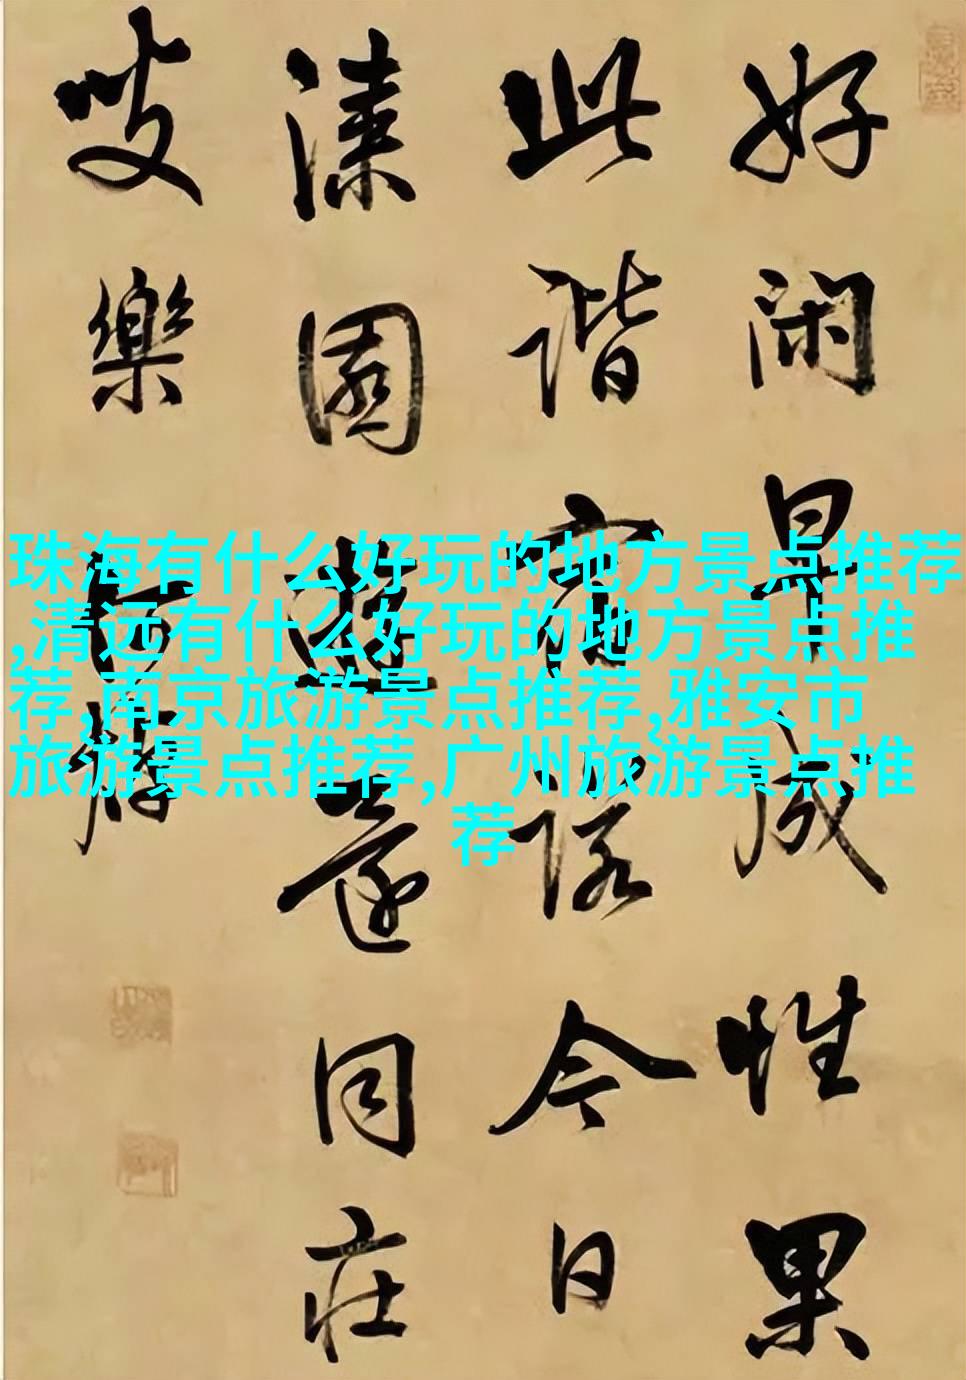 好閑早成性果
此諧宿諾今日
漆園遊還同庄
叟樂
珠海有什么好玩的地方景点推荐
,清远有什么好玩的地方景点推
荐,南京旅游景点推荐,雅安市
旅游景点推荐,广州旅游景点推
荐